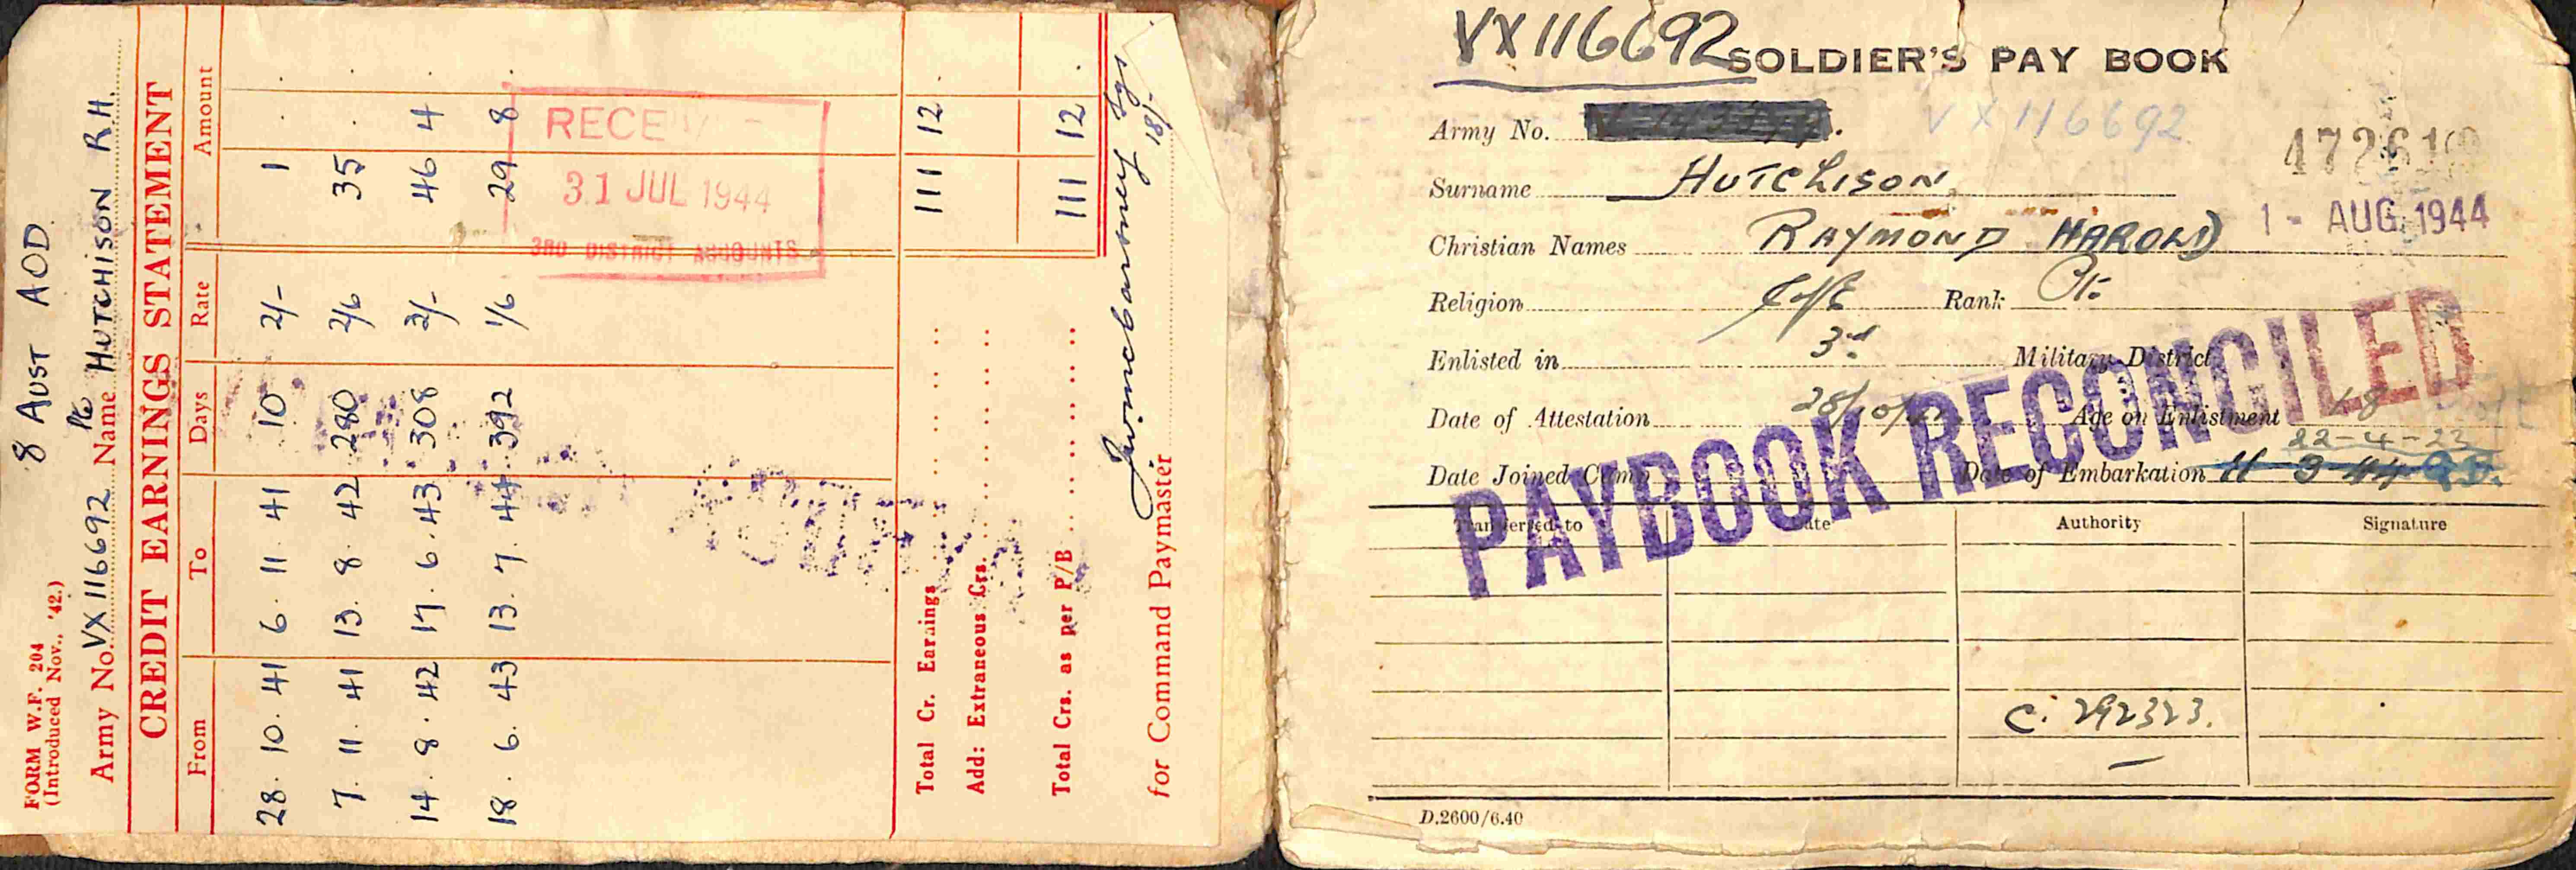 8 AUST AOD
FORM W.F. 204
(Introduced Nov., '42.)
Army No. VX 116692 Pte Name HUTCHISON R.H.
CREDIT EARNINGS STATEMENT
From To Days Rate Amount
28. 10. 41 6. 11. 41 10 2/- 1
7. 11. 41 13. 8. 42 280 2/6 35
14. 8. 42 17. 6. 43 308 3/- 46 4
18. 6. 43 13. 7. 44 392 1/6 29 8
31 JUL 1944
3RD DISTRICT ACCOUNTS
Total Cr. Earnings 111 12
Add: Extraneous Crs.
Total Crs. as per P/B 111 12
for Command Paymaster
18/-
VX 116692 SOLDIER'S PAY BOOK
Army No. VX 116692
Surname HUTCHISON
Christian Names RAYMOND HAROLD
1 - AUG 1944
Religion C/E Rank Pte
Enlisted in 3rd Military District
Date of Attestation Age on Enlistment 18
22-4-23
Date Joined Camp Date of Embarkation
PAYBOOK RECONCILED
Transferred to Date Authority Signature
C. 292323.
D.2600/6.40